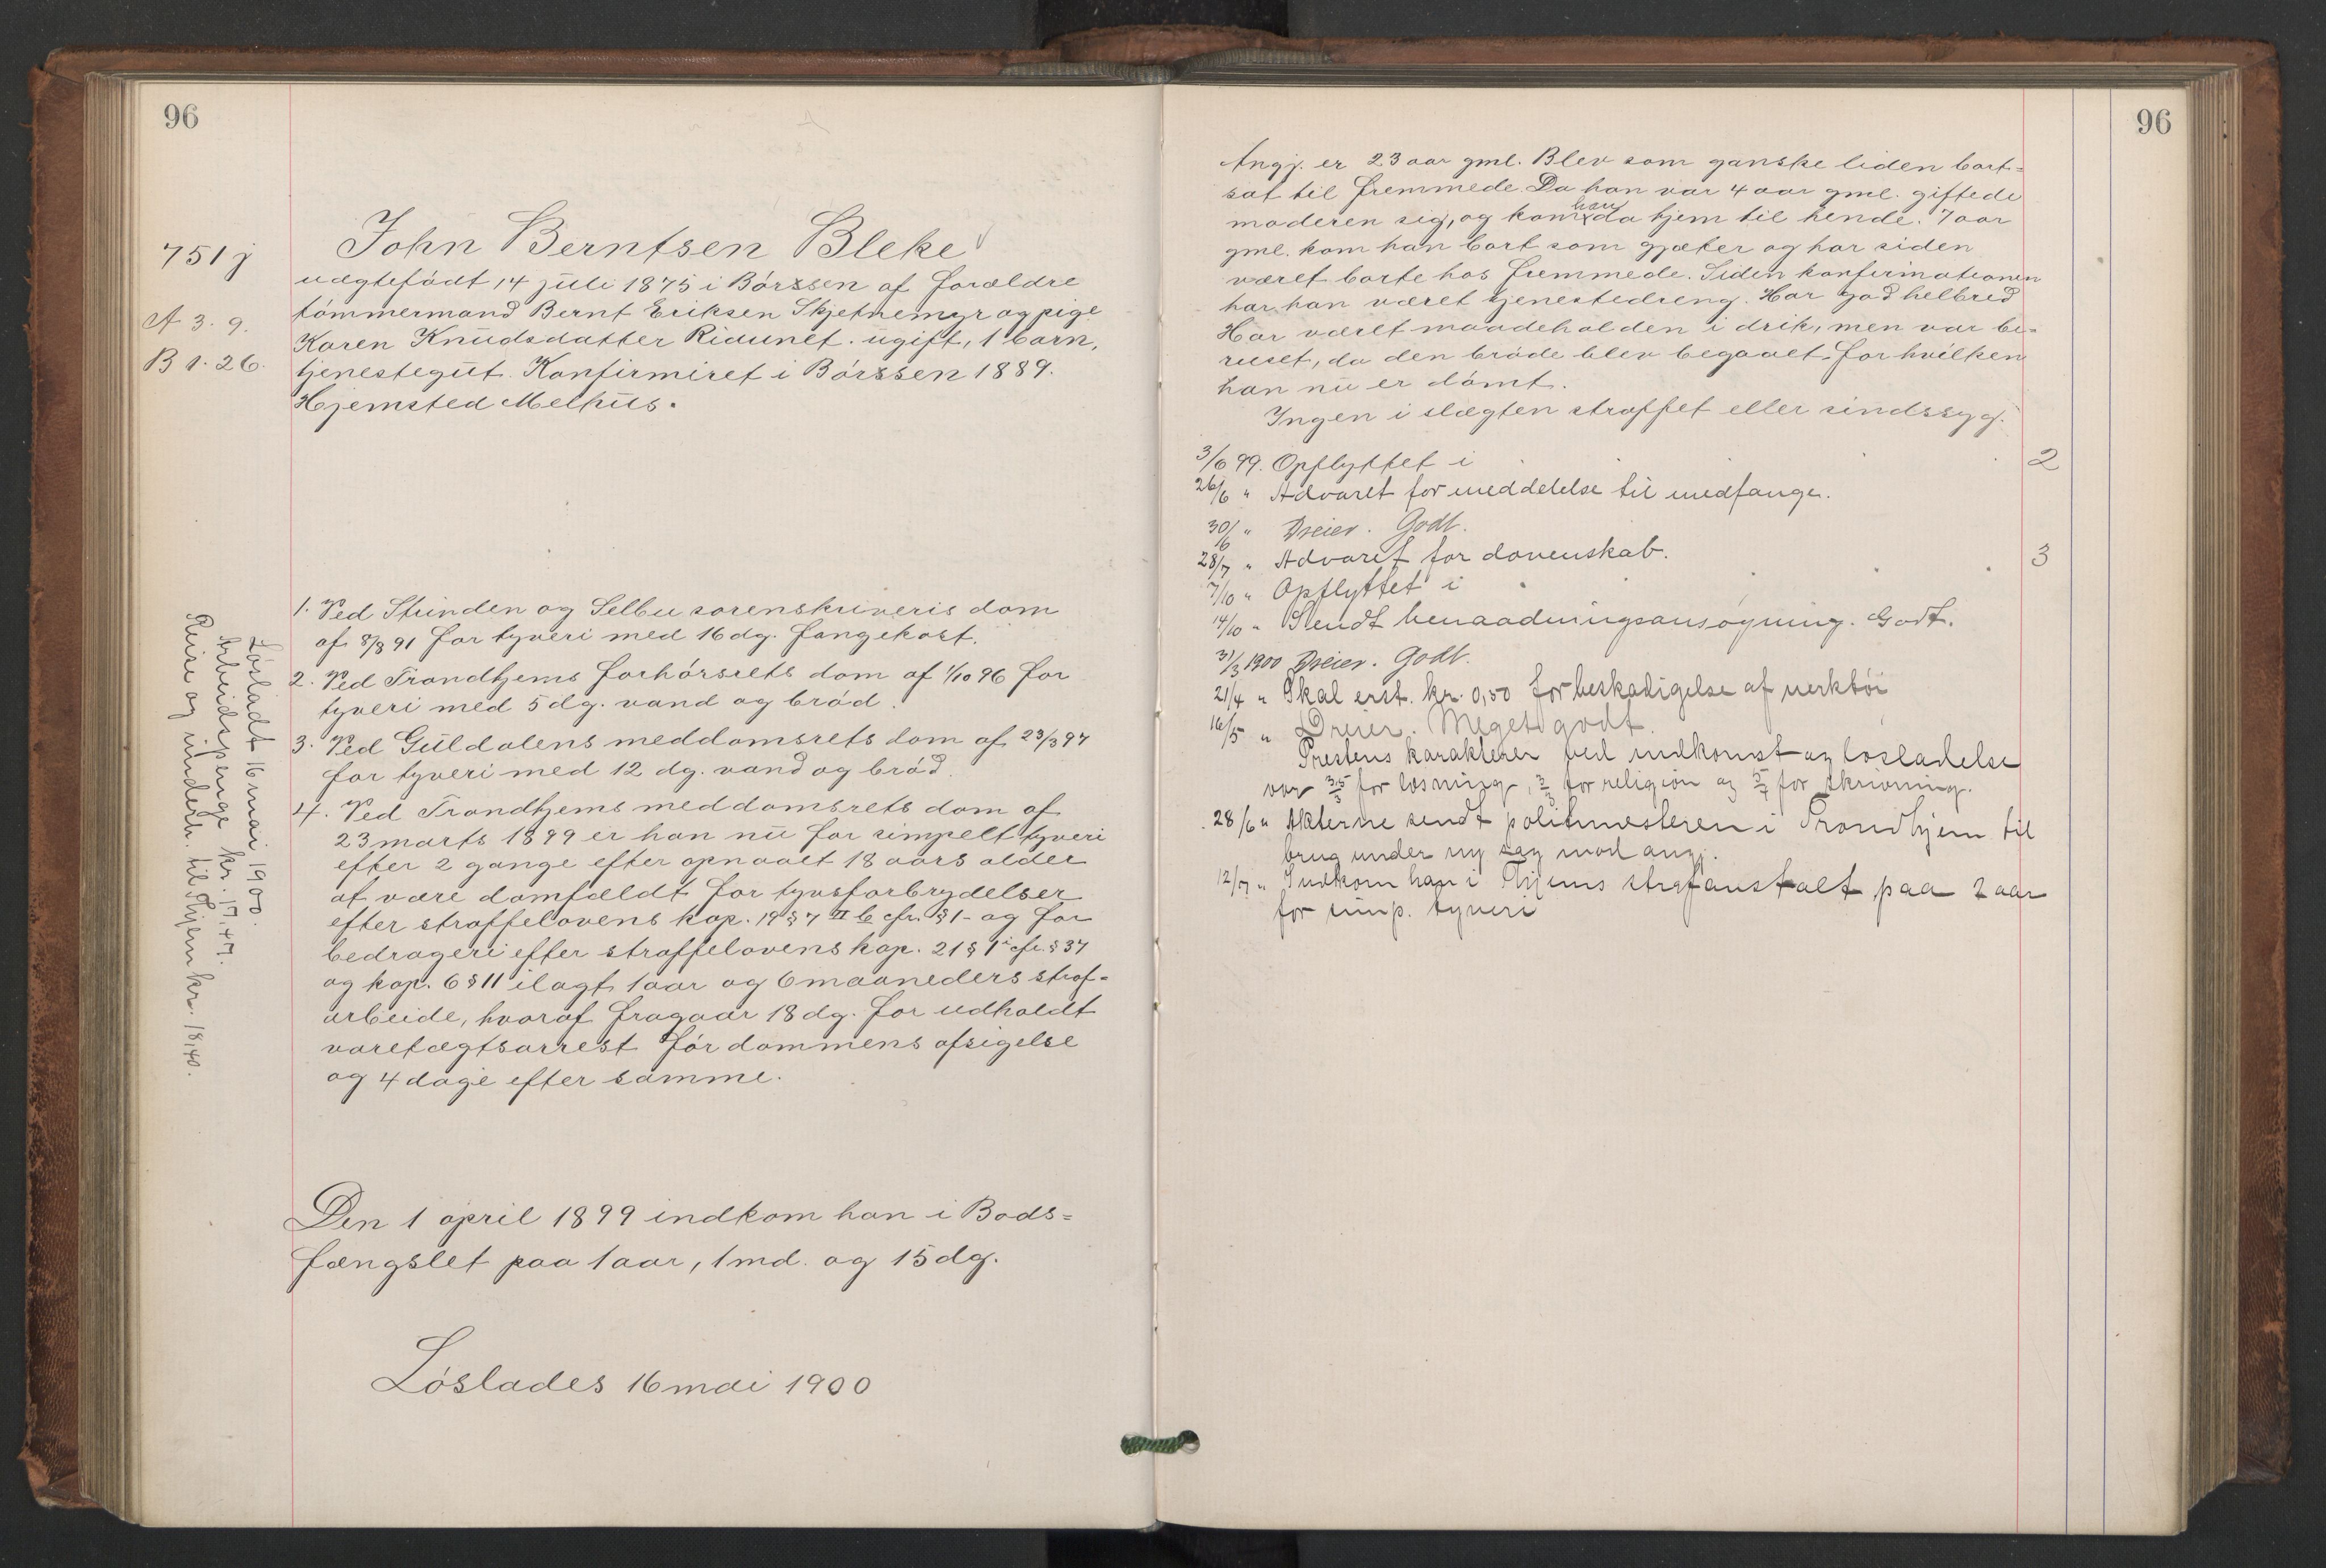 96
751 j
A 3. 9.
B 1. 26.
John Berntsen Bleke
uægtefödt 14 juli 1875 i Börssen af forældre
tömmermand Bernt Eriksen Skjetnemyr og pige
Karen Knudsdatter Ridunet. ugift, 1 barn,
tjenestegut. Konfirmeret i Börssen 1889.
Hjemsted Melhus.
1. Ved Strinden og Selbu sorenskriveris dom
af 8/8 91 for tyveri med 16 dg. fangekost.
2. Ved Trondhjems forhörsrets dom af 1/10 96 for
tyveri med 5 dg. vand og bröd.
3. Ved Guldalens meddomsrets dom af 23/3 97
for tyveri med 12 dg. vand og bröd.
4. Ved Trondhjems meddomsrets dom af
23 marts 1899 er han nu for simpelt tyveri
efter 2 gange efter opnaaet 18 aars alder
at være domfældt for tyvsforbrydelser
efter straffelovens kap. 19 § 7 II b cfr. § 1 - og for
bedrageri efter straffelovens kap. 21 § 1 cfr. § 37
og kap. 6 § 11 ilagt 1 aar og 6 maaneders straf-
arbeide, hvoraf fragaar 18 dg. for udholdt
varetægtsarrest för dommens afsigelse
og 4 dage efter samme.
Den 1 april 1899 indkom han i Bods-
fængslet paa 1 aar, 1 md. og 15 dg.
Löslades 16 mai 1900
Lösladt 16 mai 1900.
Arbeidspenge kr. 17,47.
Reise og underh. til Thjem kr. 18,40.
96
Angj. er 23 aar gml. Blev som ganske liden bort-
sat til fremmede. Da han var 4 aar gml. giftede
moderen sig, og kom han da hjem til hende. 7 aar
gml. kom han bort som gjæter og har siden
været borte hos fremmede. Siden konfirmationen
har han været tjenestedreng. Har god helbred
Har været maadeholden i drik, men var be-
ruset, da den bröde blev begaaet for hvilken
han nu er dömt.
Ingen i slægten straffet eller sindssyg.
3/6 99. Opflyttet i 2
26/6 " Advaret for meddelelse til medfange.
30/6 " Dreier. Godt.
28/7 " Advaret for dovenskab.
7/10 " Opflyttet i 3
14/10 " Sendt benaadningsansøgning. Godt.
31/3 1900 Dreier. Godt.
21/4 " Skal erst. kr. 0,50 for beskadigelse af verktöi
16/5 " Dreier. Meget godt.
Prestens karakterer ved indkomst og løsladelse
var 3,5/3 for læsning, 3/3 for religion og 5/4 for skrivning.
28/6 " Akterne sendt politimesteren i Trondhjem til
brug under ny sag mod angj.
12/7 " Indkom han i Thjems strafanstalt paa 2 aar
for simp. tyveri